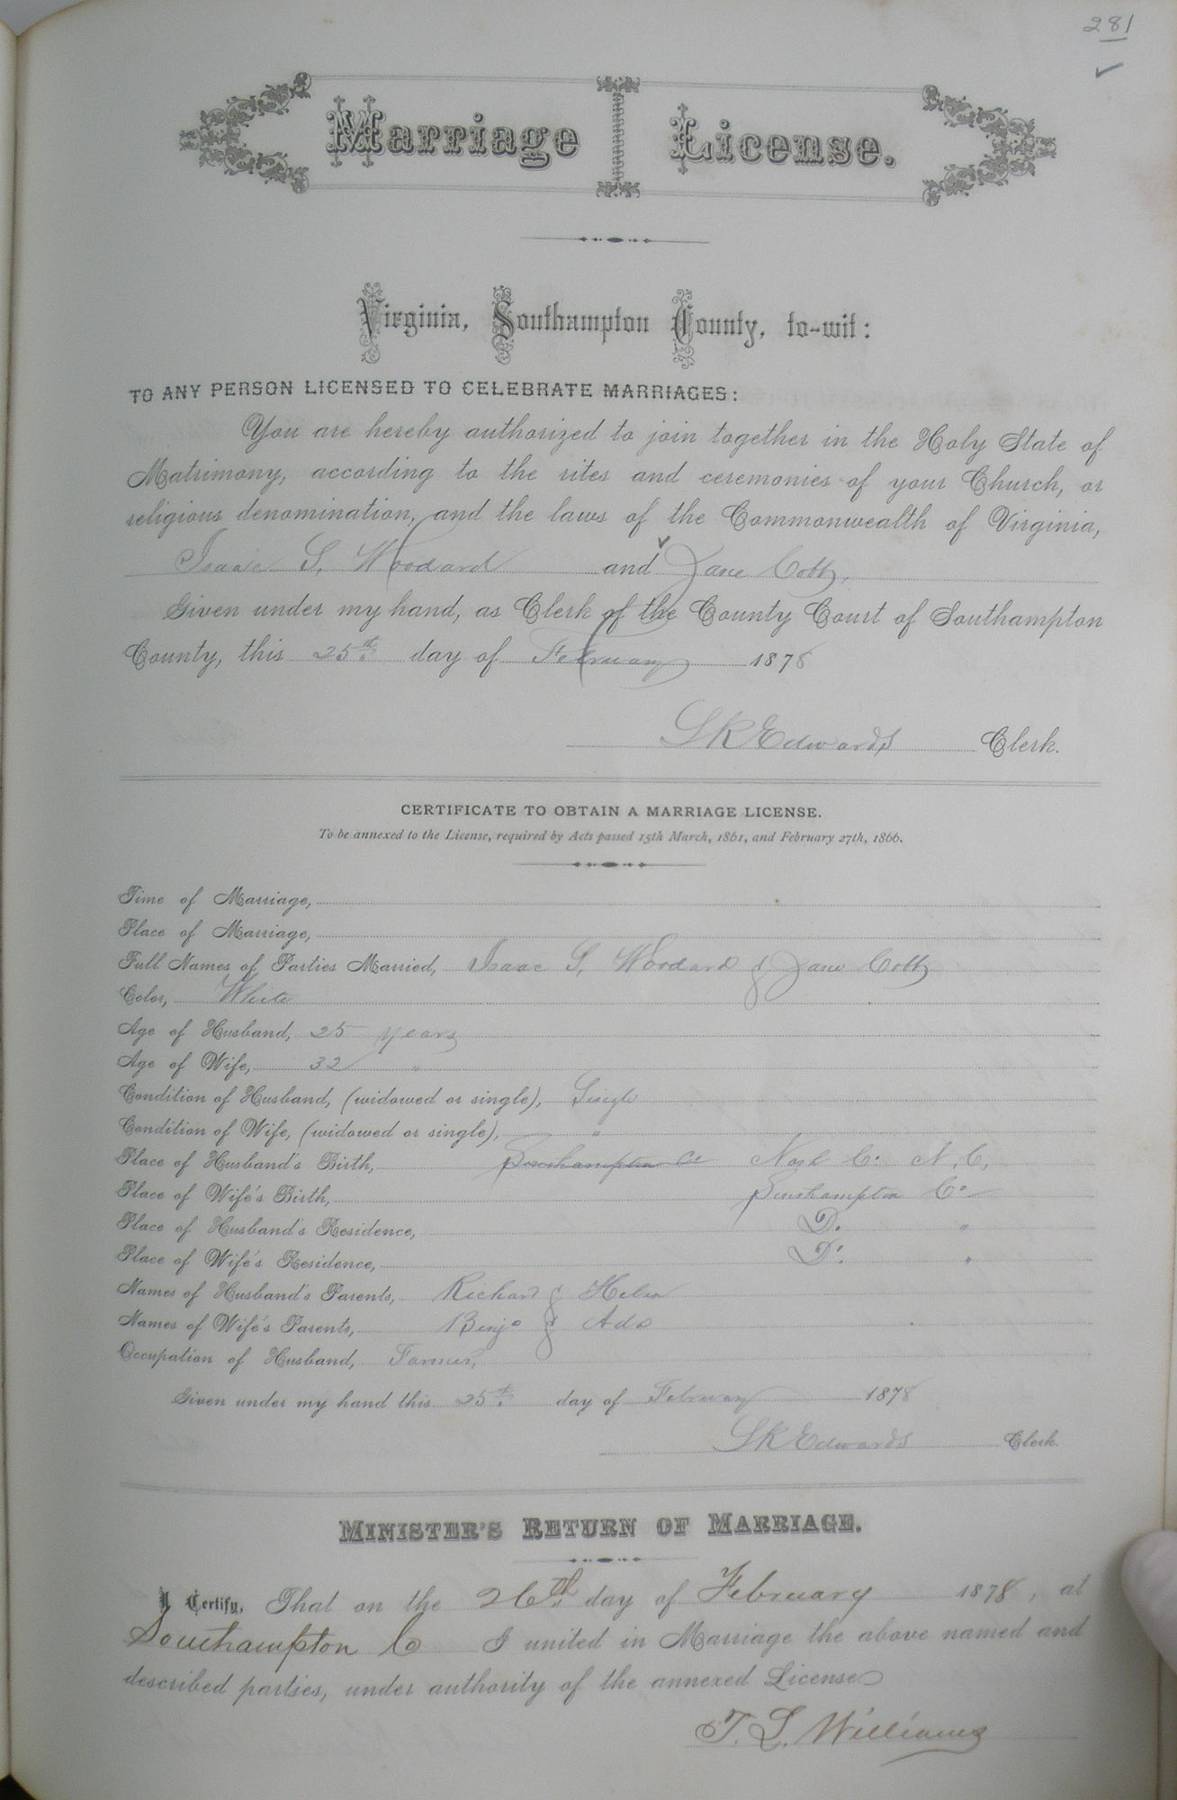 281
Marriage License.
Virginia, Southampton County, to-wit:
TO ANY PERSON LICENSED TO CELEBRATE MARRIAGES:
You are hereby authorized to join together in the Holy State of
Matrimony, according to the rites and ceremonies of your Church, or
religious denomination, and the laws of the Commonwealth of Virginia,
Isaac S. Woodard and Jane Cobb.
Given under my hand, as Clerk of the County Court of Southampton
County, this 25th day of February 1878
L R Edwards Clerk.
CERTIFICATE TO OBTAIN A MARRIAGE LICENSE.
To be annexed to the License, required by Acts passed 15th March, 1861, and February 27th, 1866.
Time of Marriage,
Place of Marriage,
Full Names of Parties Married, Isaac S. Woodard & Jane Cobb
Color, White
Age of Husband, 25 years
Age of Wife, 32 "
Condition of Husband, (widowed or single), Single
Condition of Wife, (widowed or single), "
Place of Husband's Birth, Southampton Co Nash Co. N.C.
Place of Wife's Birth, Southampton Co
Place of Husband's Residence, Do. "
Place of Wife's Residence, Do. "
Names of Husband's Parents, Richard &
Names of Wife's Parents, Benjo & Ada
Occupation of Husband, Farmer,
Given under my hand this 25th day of February 1878
L R Edwards Clerk.
MINISTER'S RETURN OF MARRIAGE.
I Certify, That on the 26th day of February 1878, at
Southampton Co I united in Marriage the above named and
described parties, under authority of the annexed License
T. L. Williams